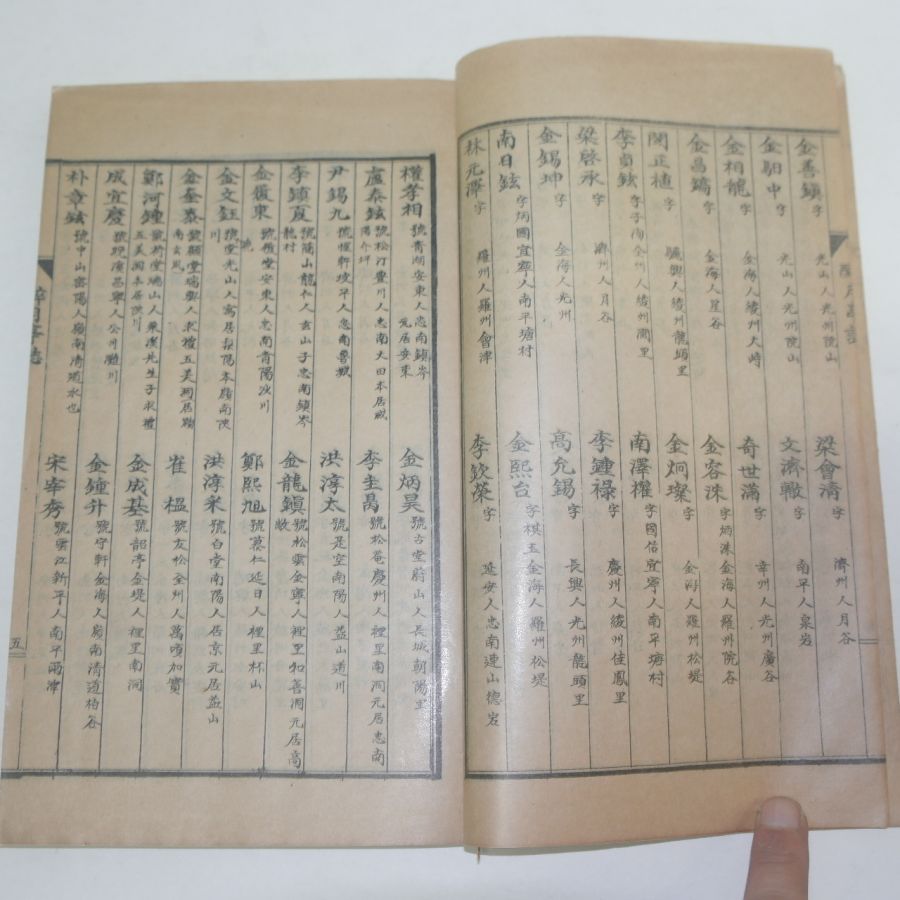 金善鎭 字 光山人光州院山
梁會淸 字 濟州人月谷
金駉中 字 光山人光州院山
文濟轍 字 南平人泉岩
金相龍 字 金海人綾州大峙
奇世滿 字 幸州人光州廣谷
金昌鏞 字 金海人星谷
金容洙 字炳洙金海人羅州院谷
閔正植 字 驪興人綾州龍頭里
金炯璨 字 金海人羅州松堤
李貞鉉 字子陶全州人綾州潤里
南澤權 字國信宜寧人南平塘村
梁啓承 字 濟州人月谷
李鍾祿 字 廣州人綾州佳鳳里
金錫坤 字 金海人光州
高允錫 字 長興人光州龍頭里
南日鉉 字炳國宜寧人南平塘村
金熙台 字棋玉金海人羅州松堤
林元澤 字 羅州人羅州會津
李欽榮 字 延安人忠南連山德岩
權孝相 號靑湖安東人忠南鎭岑元居安東
金炳昊 號古堂蔚山人長城朝陽里
盧泰鉉 號松汀豊川人忠南大田本居咸陽介坪
李圭禼 號松菴慶州人裡里南洞元居忠南
尹錫九 號惺軒坡平人忠南魯城
洪淳太 號是空南陽人益山道川
李鎭夏 號蘭山龍仁人玄山子忠南鎭岑龍村
金龍鎭 號松雲金寧人裡里和善洞元居高敞
金復東 號嶺堂安東人忠南靑陽汝川
鄭熙旭 號慕仁延日人裡里杯山
金文鈺 號 堂光山人寓居 陽本嶺南陜川
洪淳釆 號白堂南陽人居京元居益山
金奎泰 號顧堂瑞興人求禮五美洞居 南玄風
崔榲 號友松全州人萬頃加實
鄭河鍾 號 堂瑞山人 溪先生子求禮五美洞本居陜川
金成基 號韶亭金堤人裡里南洞
成宜慶 號晩濱昌寧人公州灘川
金鍾升 號守軒金海人嶺南淸道栢谷
朴章鉉 號中山密陽人嶺南淸道水也
宋宰秀 號雲江新平人南平雨津
五